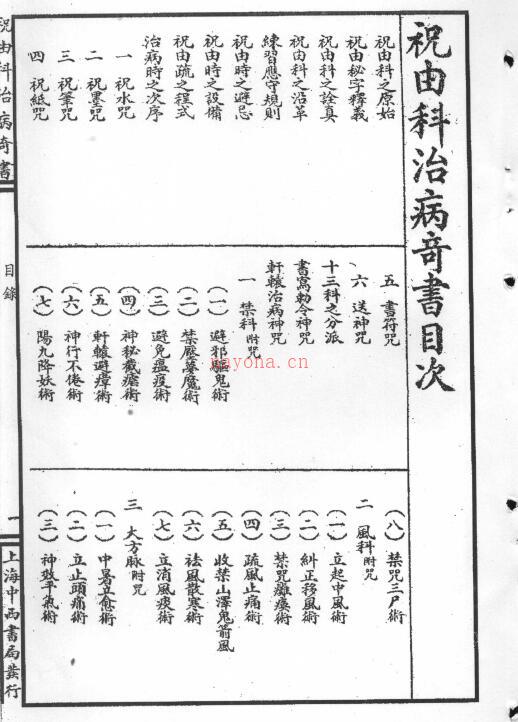 祝由科治病奇書目次
祝由科之原始
祝由秘字釋義
祝由科之詮真
祝由科之沿革
練習應守規則
祝由時之避忌
祝由時之設備
祝由疏之程式
治病時之次序
一 祝水咒
二 祝墨咒
三 祝筆咒
四 祝紙咒
五 書符咒
六 送神咒
十三科之分派
書寫勅令神咒
軒轅治病神咒
一 禁科附咒
(一) 避邪驅鬼術
(二) 禁壓夢魔術
(三) 避免瘟疫術
(四) 神秘截瘧術
(五) 軒轅避瘴術
(六) 神行不倦術
(七) 陽九降妖術
(八) 禁咒三尸術
二 風科附咒
(一) 立起中風術
(二) 糾正移風術
(三) 禁咒癱瘓術
(四) 疏風止痛術
(五) 收禁山澤鬼箭風
(六) 祛風散寒術
(七) 立消風痰術
三 大方脉附咒
(一) 中暑立愈術
(二) 立止頭痛術
(三) 神效平氣術
祝由科治病奇書
目錄
一
上海中西書局發行
nayona.cn